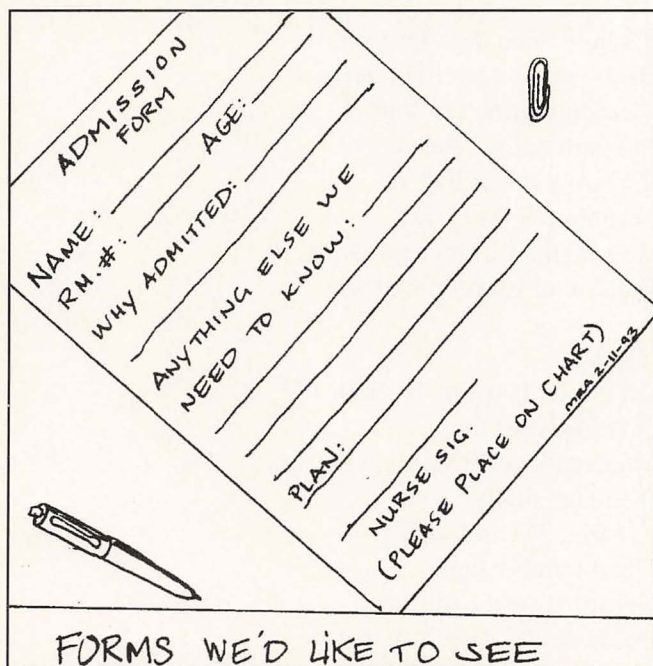 ADMISSION
FORM
NAME: AGE:
RM #:
WHY ADMITTED:
ANYTHING ELSE WE
NEED TO KNOW:
PLAN:
NURSE SIG.
(PLEASE PLACE ON CHART)
MRA 2-11-93
FORMS WE'D LIKE TO SEE